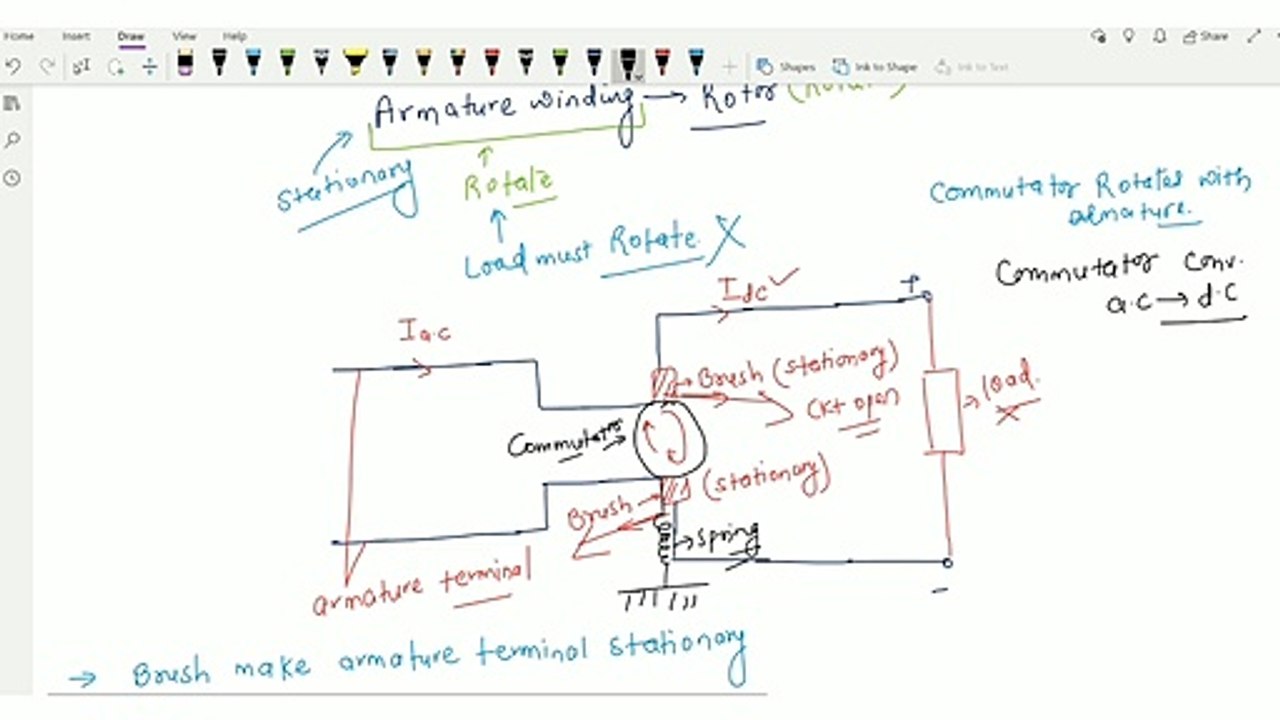 Home Insert Draw View Help
Share
Shapes Ink to Shape Ink to Text
Armature winding → Rotor
Stationary
Rotate
Load must Rotate X
Commutator Rotates with
armature.
Commutator Conv.
a.c → d.c
Idc ✓
+
Ia.c
→ Brush (stationary)
Ckt open
→ load.
Commutator →
Brush → (stationary)
→ spring
armature terminal
-
→ Brush make armature terminal stationary